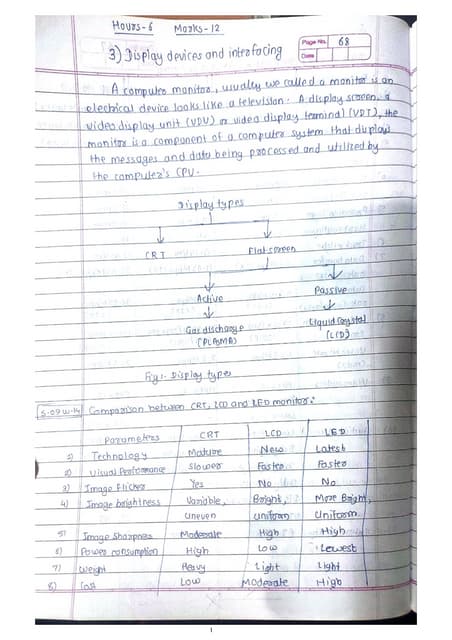 Hours-6 Marks-12
3) Display devices and interfacing
Page No. 68
Date
A computer monitor, usually we called a monitor is an
electrical device looks like a television. A display screen, a
video display unit (VDU) or video display terminal (VDT), the
monitor is a component of a computer system that displays
the messages and data being processed and utilized by
the computer's CPU.
Display types
CRT Flat screen
Active Passive
Gas discharge Liquid Crystal
(PLASMA) (LCD)
Fig:- Display types
S-09 W-14 Comparison between CRT, LCD and LED monitor:-
Parameters CRT LCD LED
1) Technology Mature New Latest
2) Visual Performance Slower Faster Faster
3) Image Flicker Yes No No
4) Image brightness Variable, Bright, More Bright,
Uneven Uniform Uniform
5) Image Sharpness Moderate High High
6) Power consumption High Low Lowest
7) Weight Heavy Light Light
8) Cost Low Moderate High
1